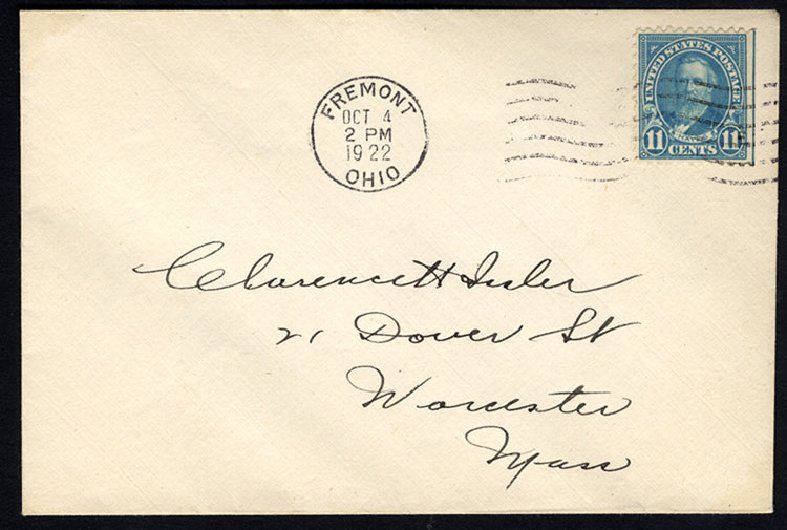 FREMONT
OCT 4
2 PM
1922
OHIO
UNITED STATES POSTAGE
11 CENTS 11
Clarence H
21 Dover St
Worcester
Mass